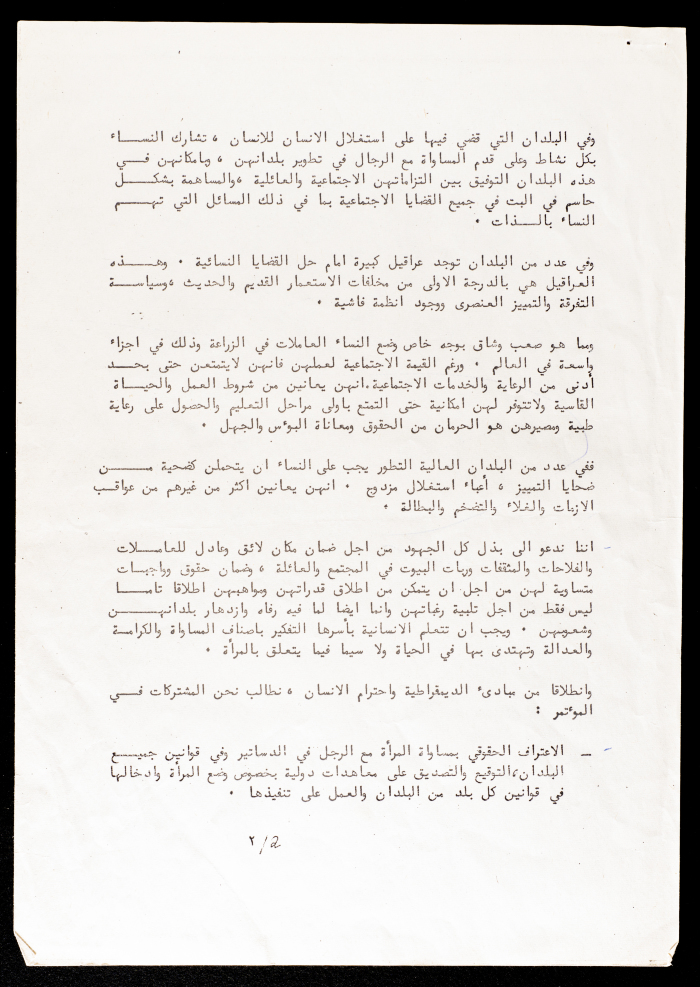 وفي البلدان التي قضي فيها على استغلال الانسان للانسان ، تشارك النســـاء
بكل نشاط وعلى قدم المساواة مع الرجال في تطوير بلدانهن ، وبامكانهن فـــي
هذه البلدان التوفيق بين التزاماتهن الاجتماعية والعائلية ،والمساهمة بشكــل
حاسم في البت في جميع القضايا الاجتماعية بما في ذلك المسائل التي تهـــم
النساء بالـــذات .
وفي عدد من البلدان توجد عراقيل كبيرة امام حل القضايا النسائية . وهـــذه
العراقيل هي بالدرجة الاولى من مخلفات الاستعمار القديم والحديث ،وسياســة
التفرقة والتمييز العنصرى ووجود انظمة فاشية .
ومما هو صعب وشاق بوجه خاص وضع النساء العاملات في الزراعة وذلك في اجزاء
واسعة في العالم . ورغم القيمة الاجتماعية لعملهن فانهن لايتمتعن حتى بحــد
أدنى من الرعاية والخدمات الاجتماعية،انهن يعانين من شروط العمل والحيــاة
القاسية ولاتتوفر لهن امكانية حتى التمتع باولى مراحل التعليم والحصول على رعاية
طبية ومصيرهن هو الحرمان من الحقوق ومعاناة البوءس والجهل .
ففي عدد من البلدان العالية التطور يجب على النساء ان يتحملن كضحية مـــن
ضحايا التمييز ، أعباء استغلال مزدوج . انهن يعانين اكثر من غيرهم من عواقــب
الازمات والغلاء والتضخم والبطالة .
اننا ندعو الى بذل كل الجهود من اجل ضمان مكان لائق وعادل للعامــلات
والفلاحات والمثقفات وربات البيوت في المجتمع والعائلة ، وضمان حقوق وواجبــات
متساوية لهن من اجل ان يتمكن من اطلاق قدراتهن ومواهبهن اطلاقا تامــا
ليس فقط من اجل تلبية رغباتهن وانما ايضا لما فيه رفاه وازدهار بلدانهـــن
وشعوبهن . ويجب ان تتعلم الانسانية بأسرها التفكير باصناف المساواة والكرامة
والعدالة وتهتدى بها في الحياة ولا سيما فيما يتعلق بالمرأة .
وانطلاقا من مبادىء الديمقراطية واحترام الانسان ، نطالب نحن المشتركات فـــي
الموءتمر :
ـ الاعتراف الحقوقي بمساواة المرأة مع الرجل في الدساتير وفي قوانين جميـــع
البلدان،التوقيع والتصديق على معاهدات دولية بخصوص وضع المرأة وادخالها
في قوانين كل بلد من البلدان والعمل على تنفيذها .
٢/2